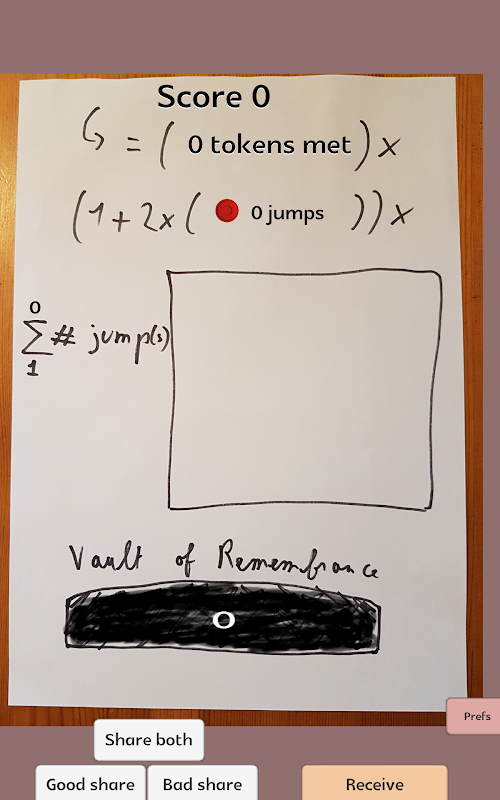 Score 0
= ( 0 tokens met ) x
(1 + 2x ( 0 jumps )) x
0
∑ # jump(s)
1
Vault of Remembrance
0
Prefs
Share both
Good share Bad share Receive